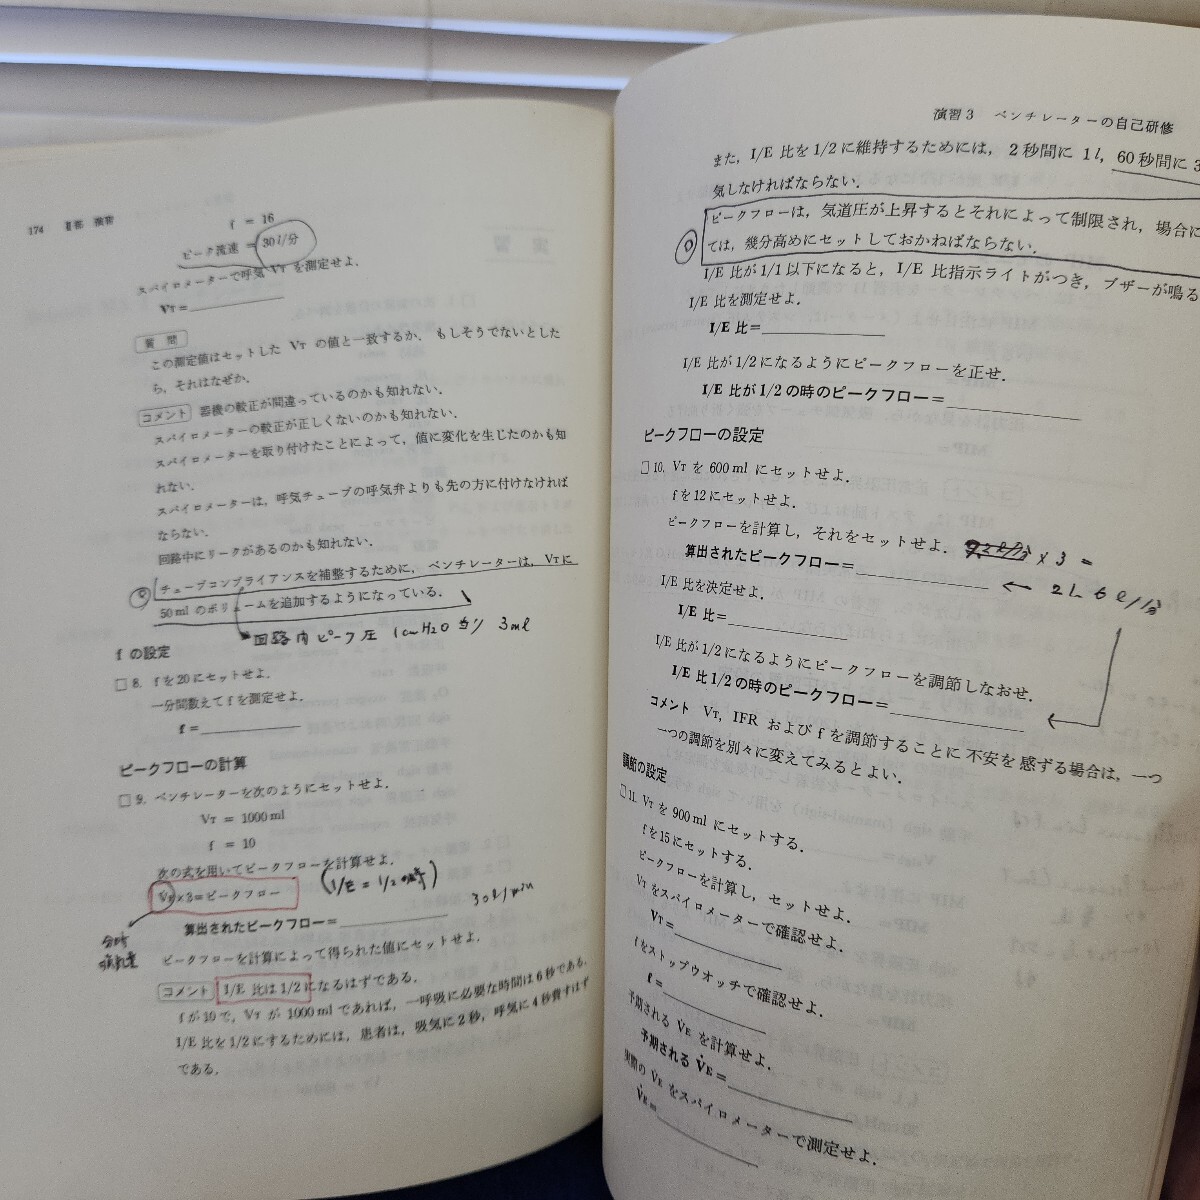 174 II部 演習
f = 16
ピーク流速 = 30 l/分
スパイロメーターで呼気 VT を測定せよ．
VT=
質問
この測定値はセットした VT の値と一致するか．もしそうでないとした
ら，それはなぜか．
コメント 器機の較正が間違っているのかも知れない．
スパイロメーターの較正が正しくないのかも知れない．
スパイロメーターを取り付けたことによって，値に変化を生じたのかも知
れない．
スパイロメーターは，呼気チューブの呼気弁よりも先の方に付けなければ
ならない．
回路中にリークがあるのかも知れない．
チューブコンプライアンスを補整するために，ベンチレーターは，VTに
50 ml のボリュームを追加するようになっている．
回路内ピーク圧 1cmH2O 当り 3ml
f の設定
□ 8. fを20にセットせよ．
一分間数えてfを測定せよ．
f=
ピークフローの計算
□ 9. ベンチレーターを次のようにセットせよ．
VT = 1000 ml
f = 10
次の式を用いてピークフローを計算せよ．
V̇E×3=ピークフロー (I/E = 1/2の時)
分時換気量
算出されたピークフロー= 30l/min
ピークフローを計算によって得られた値にセットせよ．
コメント I/E 比は 1/2 になるはずである．
fが10で，VT が 1000 ml であれば，一呼吸に必要な時間は6秒である．
I/E 比を1/2にするためには，患者は，吸気に2秒，呼気に4秒費すはず
である．
演習3 ベンチレーターの自己研修
また，I/E 比を1/2に維持するためには，2秒間に 1l，60秒間に 3
気しなければならない．
ピークフローは，気道圧が上昇するとそれによって制限され，場合に
ては，幾分高めにセットしておかねばならない．
I/E 比が1/1以下になると，I/E 比指示ライトがつき，ブザーが鳴る
I/E 比を測定せよ．
I/E 比=
I/E 比が1/2になるようにピークフローを正せ．
I/E 比が1/2の時のピークフロー=
ピークフローの設定
□ 10. VT を 600 ml にセットせよ．
fを12にセットせよ．
ピークフローを計算し，それをセットせよ． × 3 =
算出されたピークフロー= ← 21.6l/分
I/E 比を決定せよ．
I/E 比=
I/E 比が1/2になるようにピークフローを調節しなおせ．
I/E 比1/2の時のピークフロー=
コメント VT，IFR およびfを調節することに不安を感ずる場合は，一つ
一つの調節を別々に変えてみるとよい．
調節の設定
□ 11. VT を 900 ml にセットする．
fを15にセットする．
ピークフローを計算し，セットせよ．
VT をスパイロメーターで確認せよ．
VT=
fをストップウオッチで確認せよ．
f=
予期される V̇E を計算せよ．
予期される V̇E=
実際の V̇E をスパイロメーターで測定せよ．
V̇E=